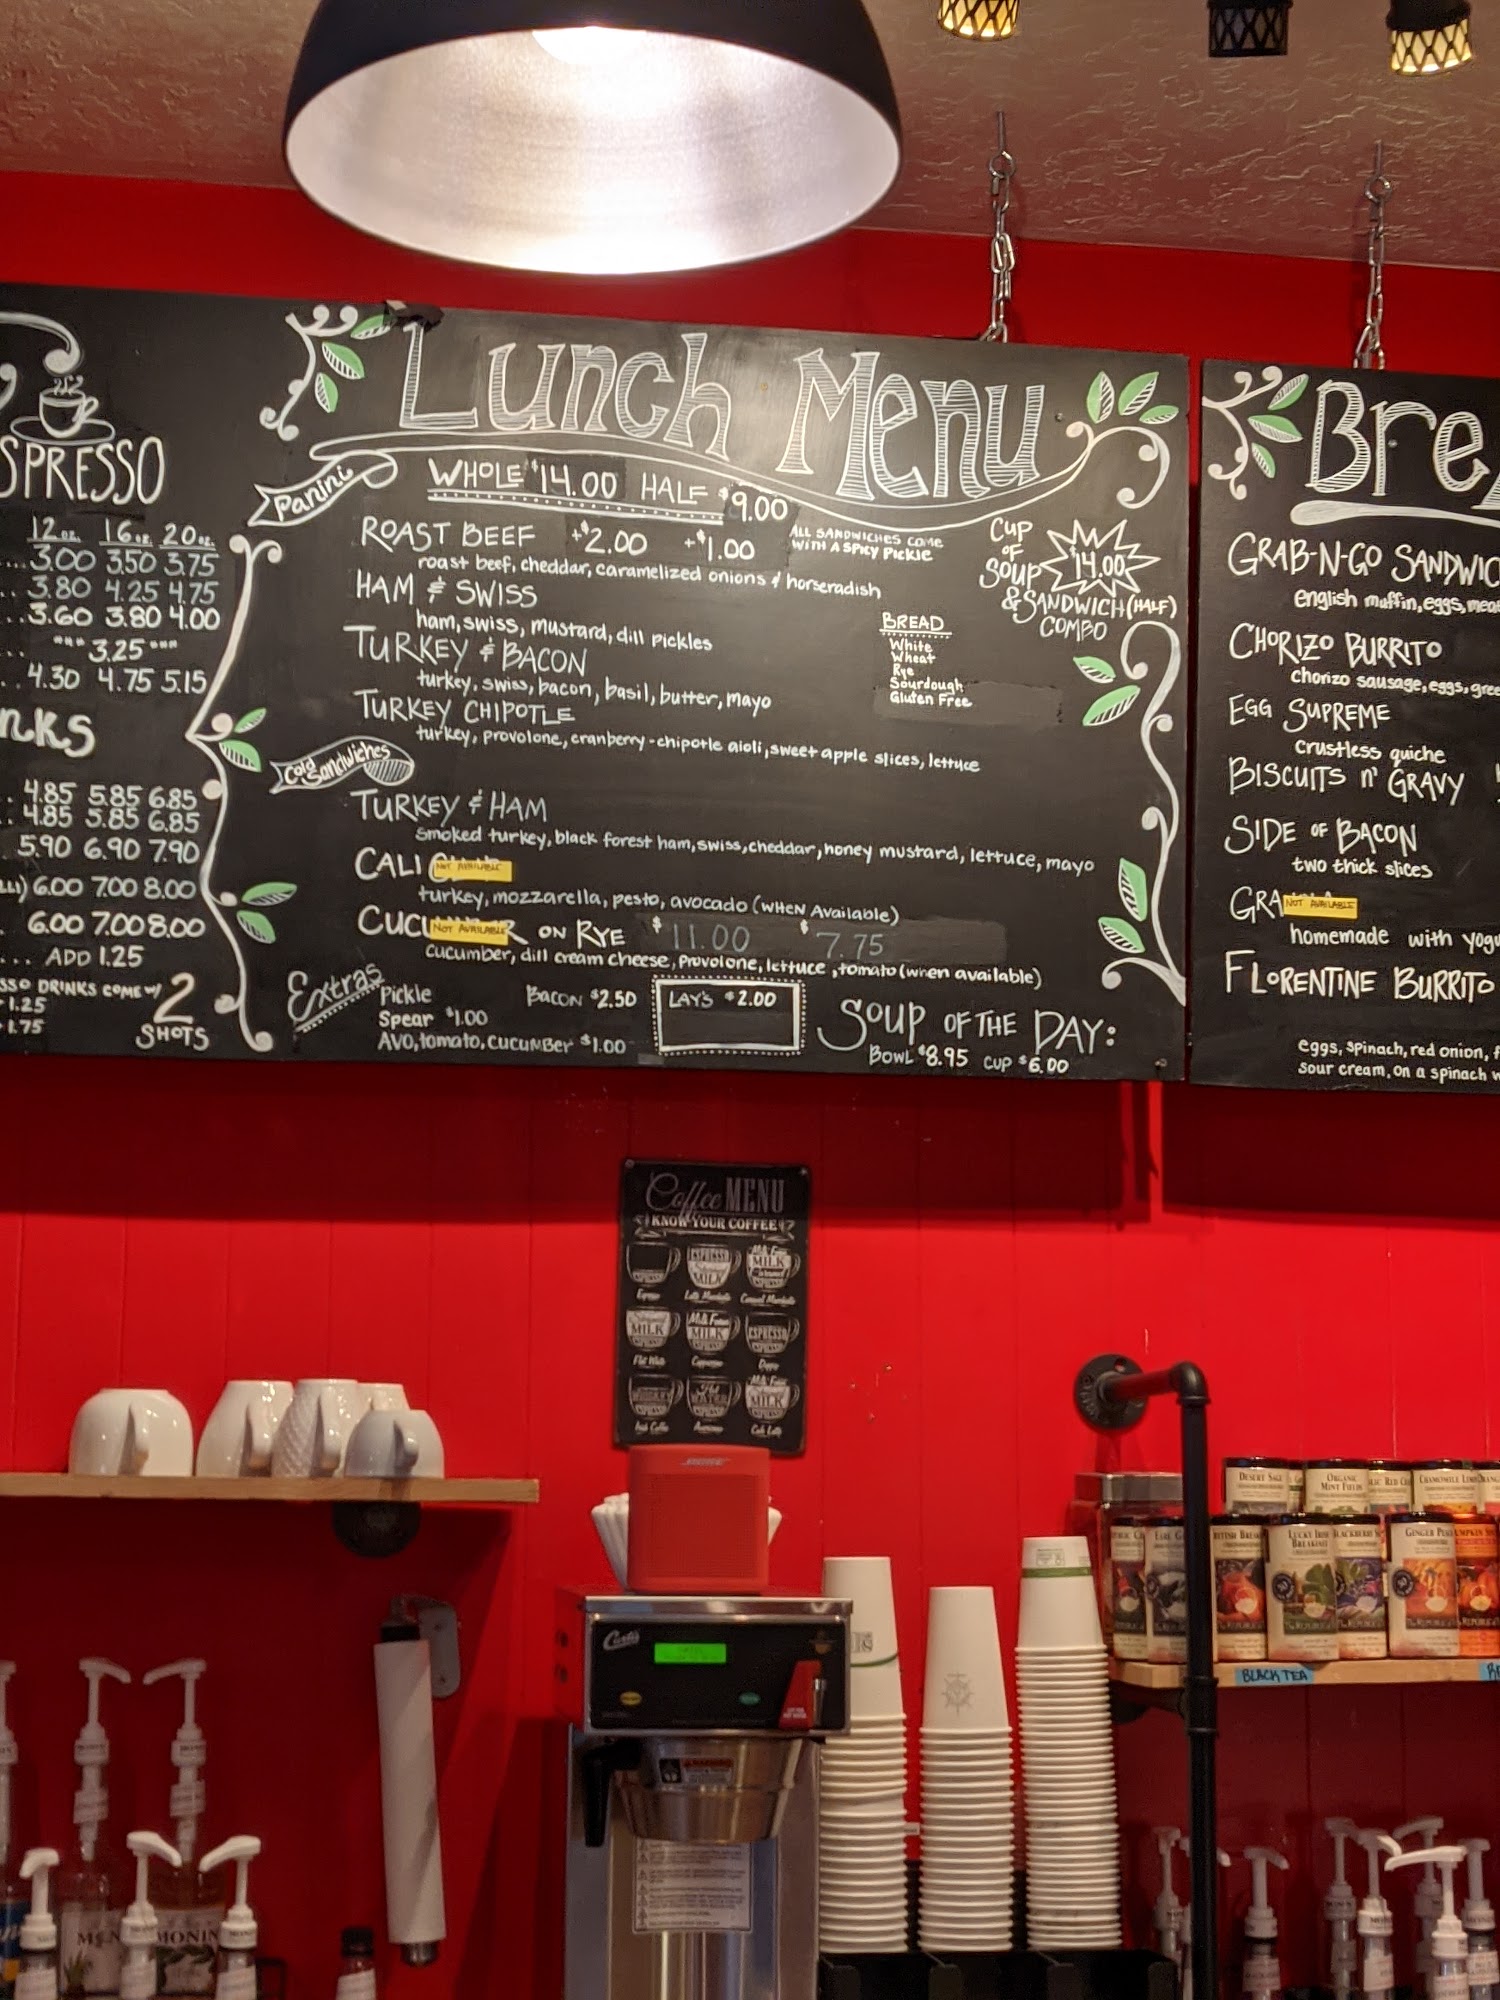 SPRESSO
12 oz. 16 oz. 20 oz.
...3.00 3.50 3.75
.. 3.80 4.25 4.75
...3.60 3.80 4.00
""" 3.25 """
.. 4.30 4.75 5.15
nks
4.85 5.85 6.85
4.85 5.85 6.85
5.90 6.90 7.90
6.00 7.00 8.00
6.00 7.00 8.00
... ADD 1.25
DRINKS COME W/ 2
SHOTS
1.25
1.75
Lunch Menu
Panini
WHOLE $14.00 HALF $9.00
ROAST BEEF +$2.00 +$1.00
ALL SANDWICHES COME
WITH A SPICY PICKLE
roast beef, cheddar, caramelized onions & horseradish
HAM & SWISS
ham, swiss, mustard, dill pickles
TURKEY & BACON
turkey, swiss, bacon, basil, butter, mayo
TURKEY CHIPOTLE
turkey, provolone, cranberry-chipotle aioli, sweet apple slices, lettuce
CUP
OF
SOUP
$14.00
& SANDWICH (HALF)
COMBO
BREAD
White
Wheat
Rye
Sourdough
Gluten Free
Cold Sandwiches
TURKEY & HAM
smoked turkey, black forest ham, swiss, cheddar, honey mustard, lettuce, mayo
CALI NOT AVAILABLE
turkey, mozzarella, pesto, avocado (WHEN Available)
CUCU NOT AVAILABLE R ON RYE $11.00 $7.75
cucumber, dill cream cheese, provolone, lettuce, tomato (when available)
Extras
Pickle
Spear $1.00
AVO, tomato, CUCUMBER $1.00
BACON $2.50
LAY'S $2.00
SOUP OF THE DAY:
BOWL $8.95 CUP $6.00
Bre
GRAB-N-GO SANDWIC
english muffin, eggs, meat
CHORIZO BURRITO
chorizo sausage, eggs, gree
EGG SUPREME
crustless quiche
BISCUITS N' GRAVY
SIDE OF BACON
two thick slices
GRA NOT AVAILABLE
homemade with yogu
FLORENTINE BURRITO
eggs, spinach, red onion, f
sour cream, on a spinach w
Coffee MENU
KNOW YOUR COFFEE
ESPRESSO
MILK
Milk Foam
MILK
Espresso
Latte Macchiato
Caramel Macchiato
MILK
Milk Foam
MILK
ESPRESSO
Flat White
Cappuccino
Doppio
Hot
WATER
Milk Foam
MILK
Irish Coffee
Americano
Cafe Latte
BOSE
Curtis
DESERT SAGE
ORGANIC
MINT FIELDS
RED C
CHAMOMILE LEM
EARL G
BRITISH BREAK
LUCKY IRISH
BREAKFAST
BLACKBERRY S
GINGER PEA
PUMPKIN S
BLACK TEA
MONIN